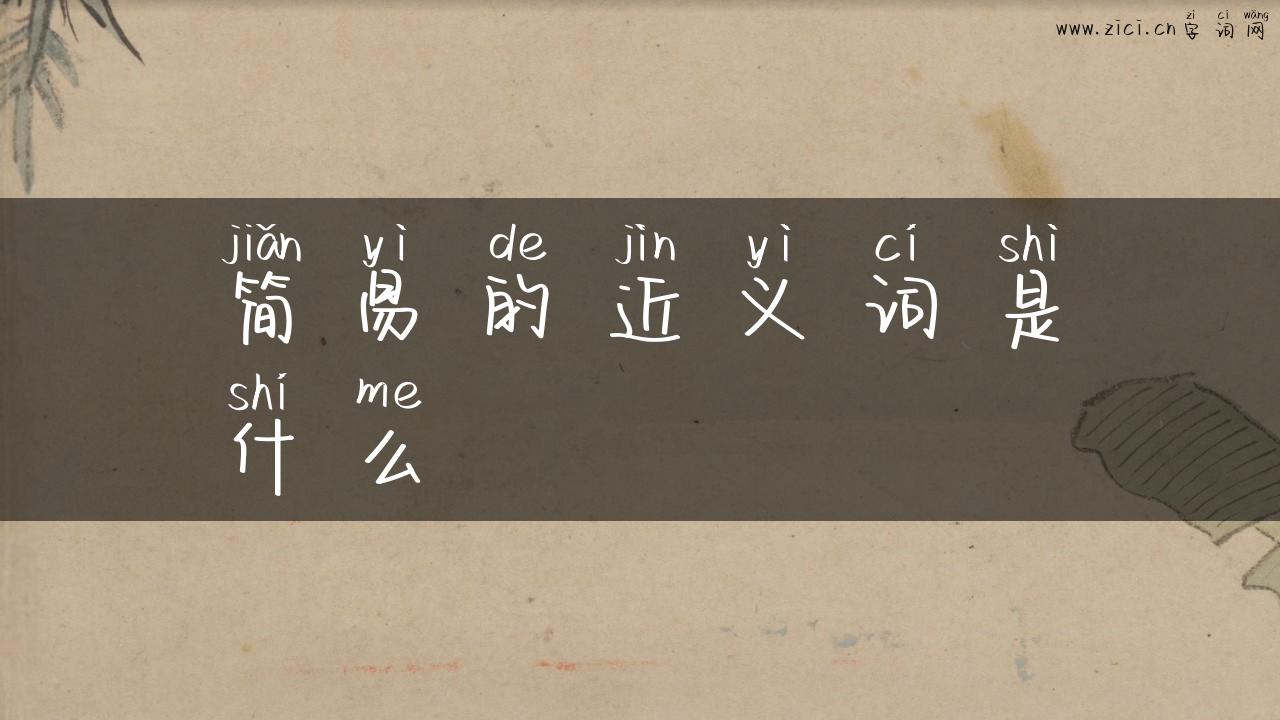 zì cí wǎng
www.zici.cn 字 词 网
jiǎn yì de jìn yì cí shì
简 易 的 近 义 词 是
shí me
什 么